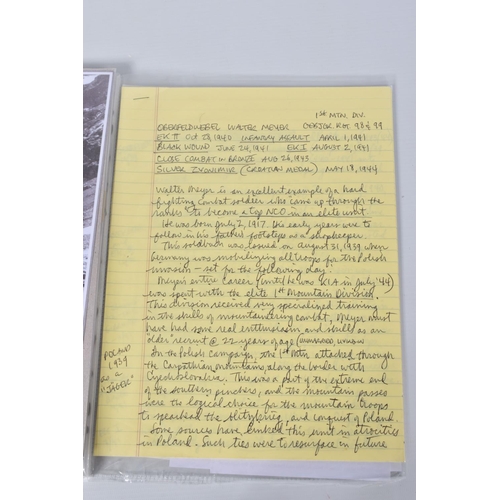 1ST MTN. DIV.
OBERFELDWEBEL WALTER MEYER GEBJGR RGT 98 & 99
EK II OCT 28, 1940 INFANTRY ASSAULT APRIL 1, 1941
BLACK WOUND JUNE 24, 1941 EK I AUGUST 2, 1941
CLOSE COMBAT IN BRONZE AUG 26, 1943
SILVER ZVONIMIR (CROATIAN MEDAL) MAY 18, 1944
Walter Meyer is an excellent example of a hard
fighting combat soldier who came up through the
ranks to become a top NCO in an elite unit.
He was born July 2, 1917. His early years were to
follow in his father's footsteps as a shopkeeper.
This soldbuch was issued on August 31, 1939 when
Germany was mobilizing all troops for the Polish
invasion - set for the following day.
Meyer's entire career (until he was KIA in July '44)
was spent with the elite 1st Mountain Division.
This division received very specialized training
in the skills of mountaineering combat. Meyer must
have had some real enthusiasm and skills as an
older recruit @ 22 years of age
In the Polish campaign, the 1st Mtn attacked through
the Carpathian mountains along the border with
Czechoslovakia. This was a part of the extreme end
of the southern pinchers, and the mountain passes
were the logical choice for the mountain troops
to spearhead the blitzkrieg, and conquest of Poland.
Some sources have linked this unit in atrocities
in Poland. Such ties were to resurface in future
POLAND
1939
as a
"JAGER"